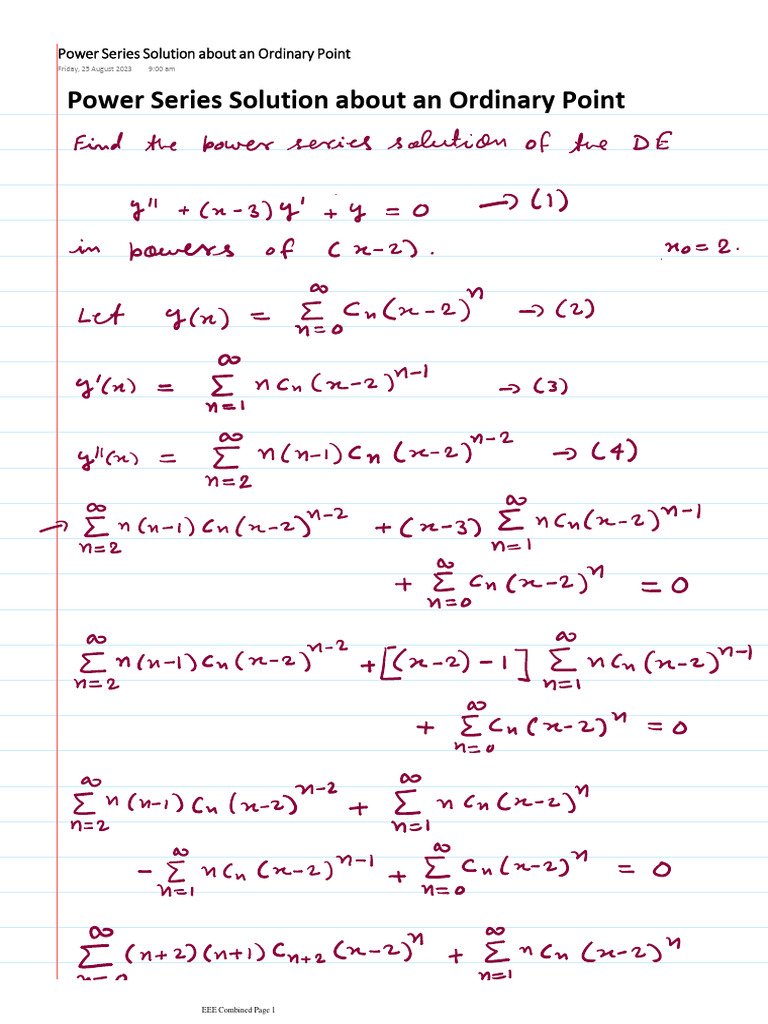 Power Series Solution about an Ordinary Point
Friday, 25 August 2023 9:00 am
Power Series Solution about an Ordinary Point
Find the power series solution of the DE
y'' + (x-3)y' + y = 0 → (1)
in powers of (x-2). x₀ = 2.
Let y(x) = ∑_{n=0}^{∞} Cₙ(x-2)ⁿ → (2)
y'(x) = ∑_{n=1}^{∞} n Cₙ (x-2)^{n-1} → (3)
y''(x) = ∑_{n=2}^{∞} n(n-1) Cₙ (x-2)^{n-2} → (4)
→ ∑_{n=2}^{∞} n(n-1) Cₙ(x-2)^{n-2} + (x-3) ∑_{n=1}^{∞} n Cₙ(x-2)^{n-1}
+ ∑_{n=0}^{∞} Cₙ(x-2)ⁿ = 0
∑_{n=2}^{∞} n(n-1) Cₙ(x-2)^{n-2} + [(x-2) - 1] ∑_{n=1}^{∞} n Cₙ(x-2)^{n-1}
+ ∑_{n=0}^{∞} Cₙ(x-2)ⁿ = 0
∑_{n=2}^{∞} n(n-1) Cₙ(x-2)^{n-2} + ∑_{n=1}^{∞} n Cₙ(x-2)ⁿ
- ∑_{n=1}^{∞} n Cₙ(x-2)^{n-1} + ∑_{n=0}^{∞} Cₙ(x-2)ⁿ = 0
∑_{n=0}^{∞} (n+2)(n+1) C_{n+2} (x-2)ⁿ + ∑_{n=1}^{∞} n Cₙ (x-2)ⁿ
EEE Combined Page 1